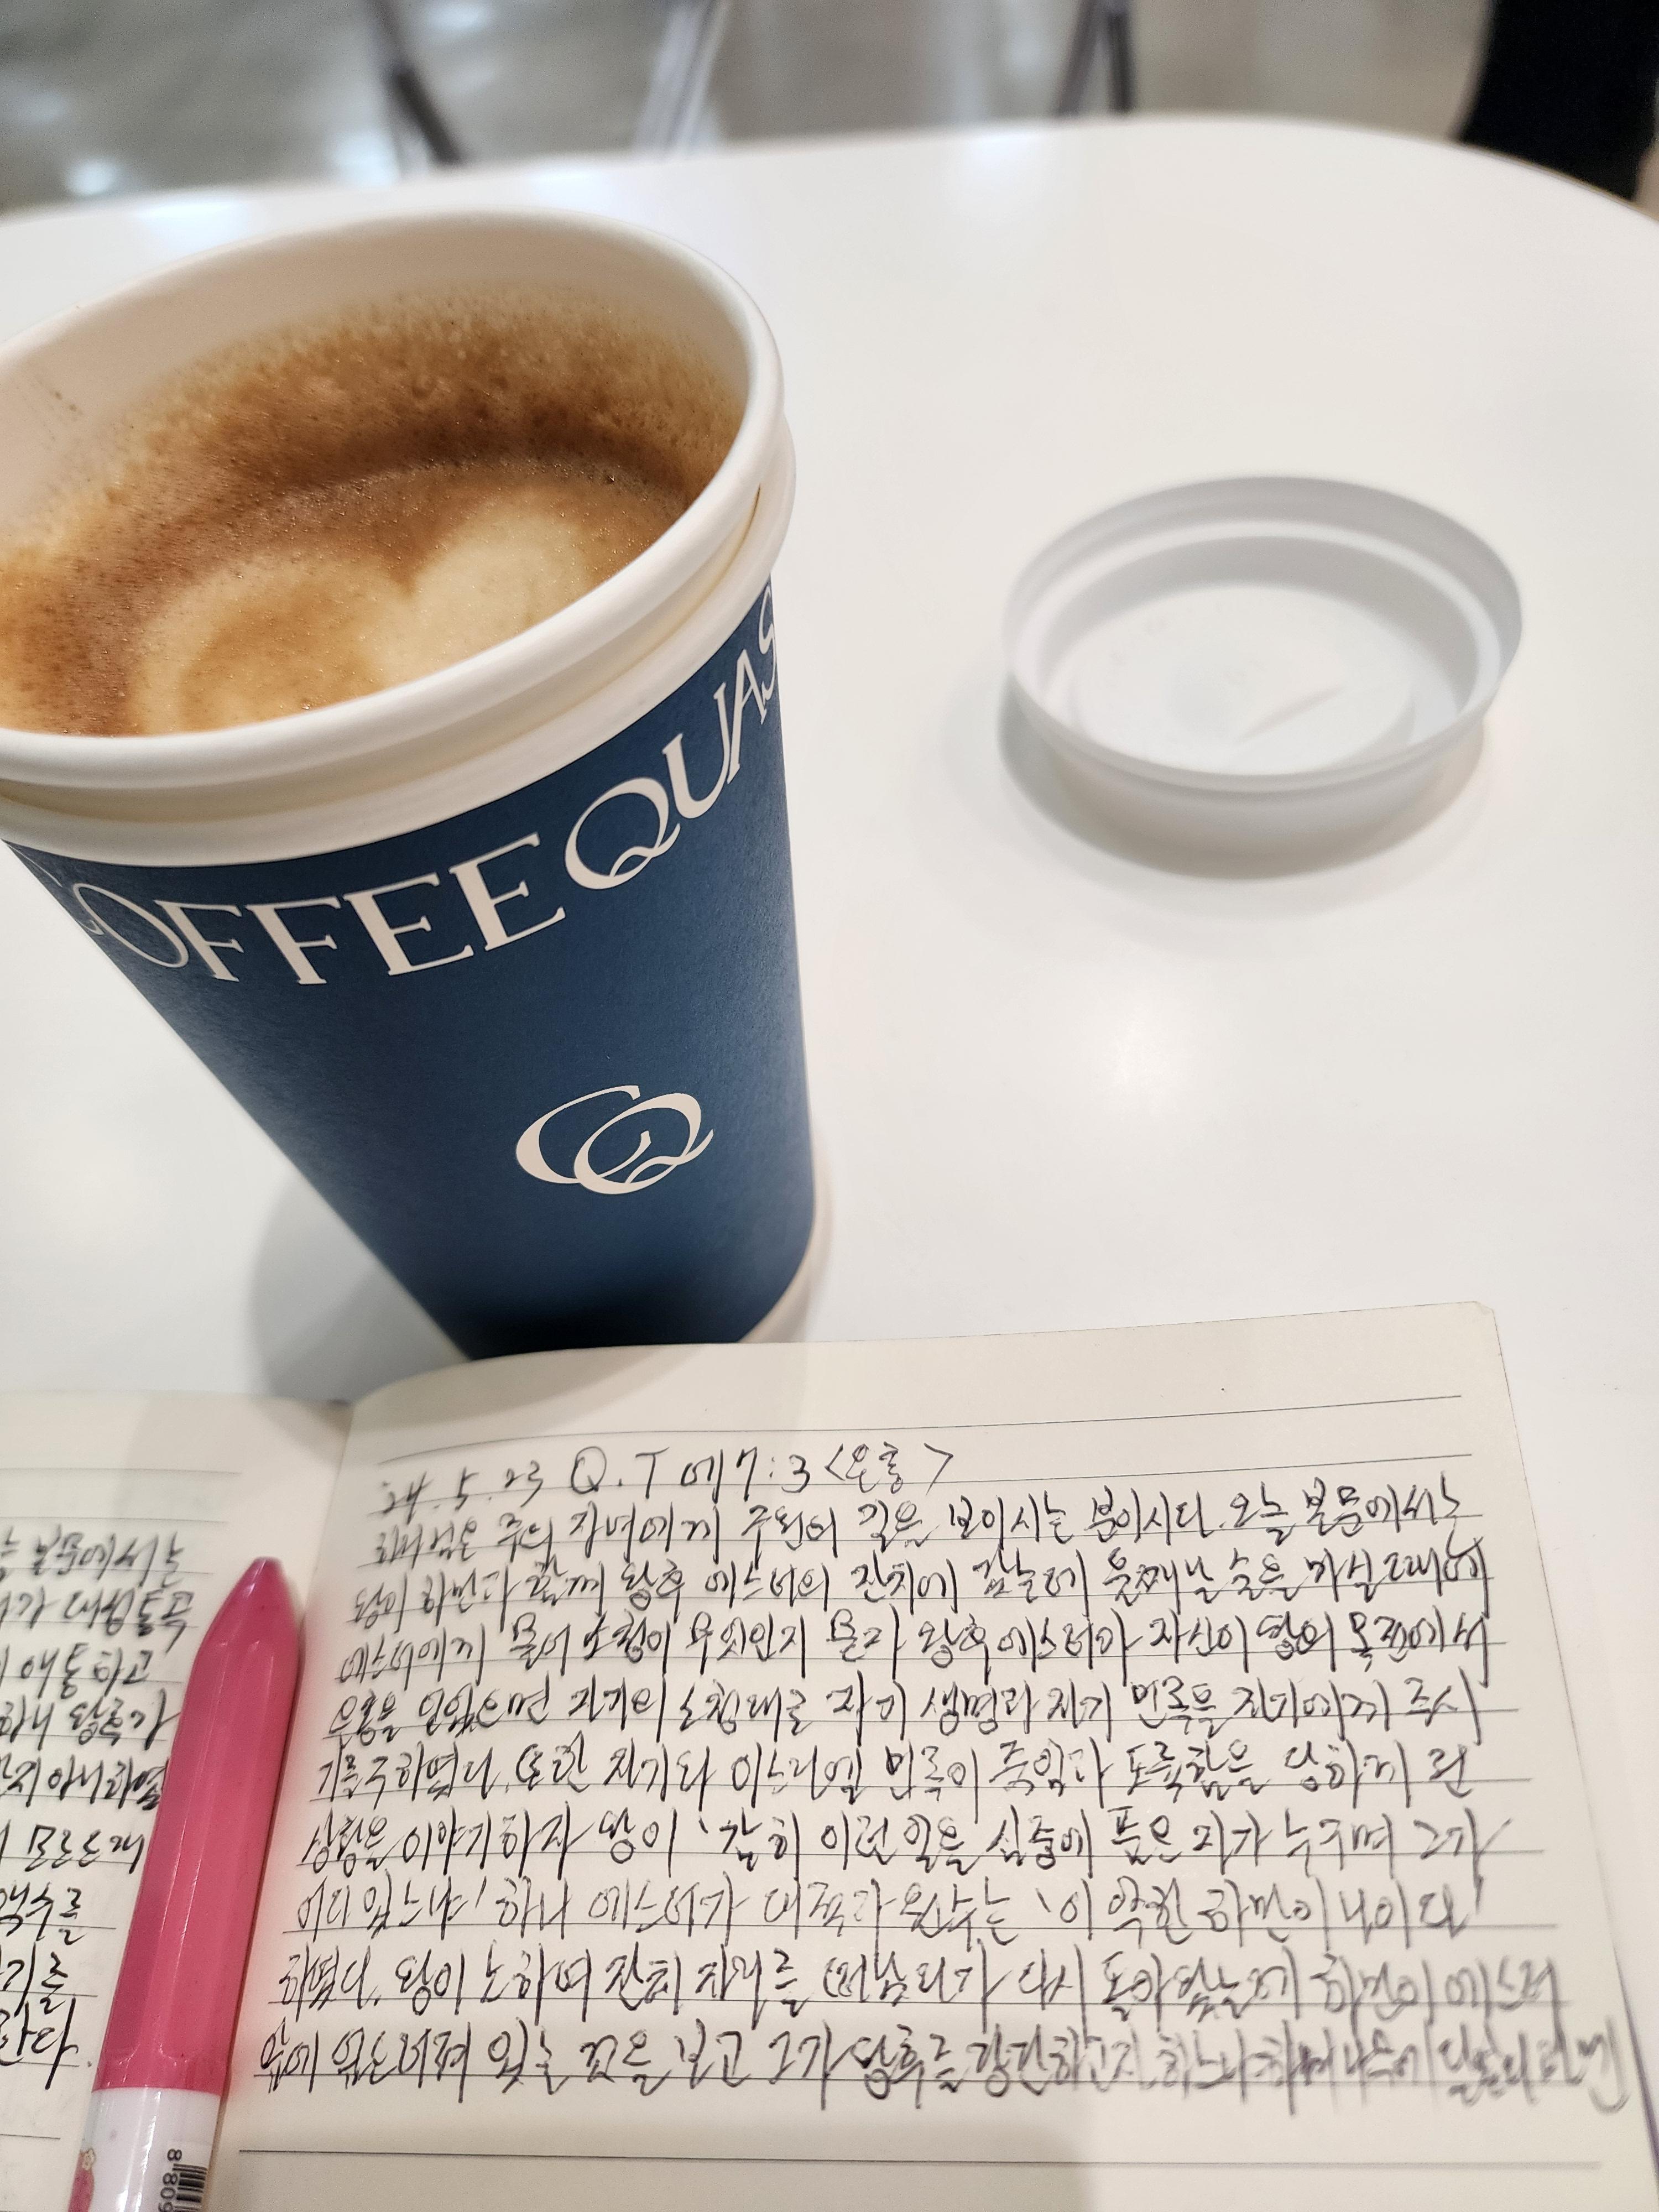 COFFEE QUAS
CQ
24.5.23 Q.T 에7:3 <요청>
하나님은 주의 자녀에게 구원의 길을 보이시는 분이시다. 오늘 본문에서는
왕이 하만과 함께 왕후 에스더의 잔치에 갔는데 둘째날 술을 마실 때에
에스더에게 물어 소청이 무엇인지 묻자 왕후 에스더가 자신이 왕의 목전에서
은총을 입었으면 자기의 소청대로 자기 생명과 자기 민족을 자기에게 주시
기를 구하였다. 또한 자기와 이스라엘 민족이 죽임과 도륙함을 당하게 된
상황을 이야기하자 왕이 '감히 이런 일을 심중에 품은 자가 누구며 그가
어디 있느냐' 하니 에스더가 대적과 원수는 '이 악한 하만이니이다'
하였다. 왕이 노하여 잔치 자리를 떠났다가 다시 돌아왔는데 하만이 에스더
앞에 엎드려져 있는 것을 보고 그가 왕후를 강간하고자 하느냐
는 본문에서는
가 대성통곡
애통하고
하니 왕후가
지 아니하였
모르드개
를
기를
한다.
8 809